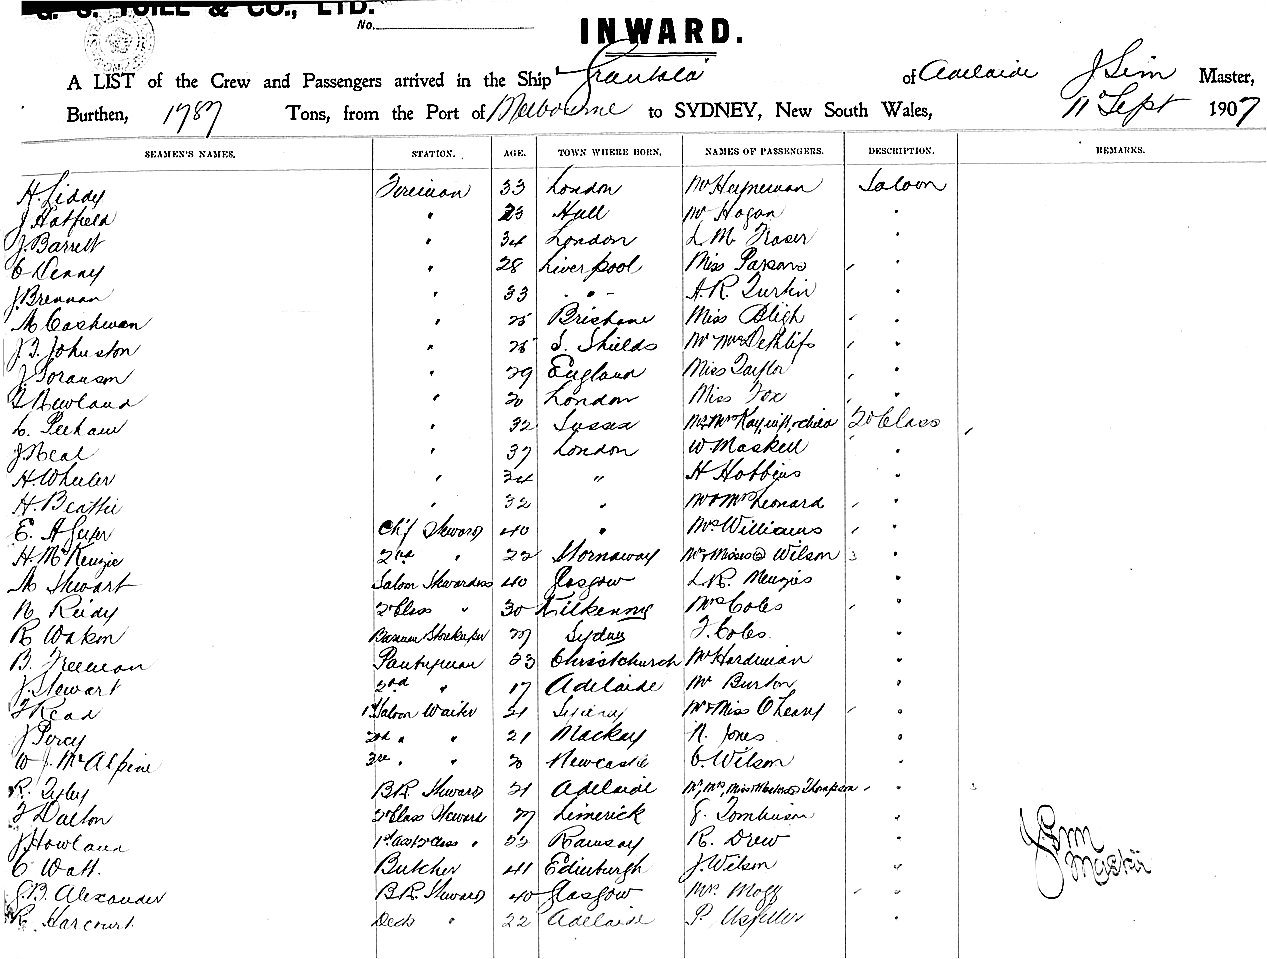 & CO., LTD.
No.
INWARD.
A LIST of the Crew and Passengers arrived in the Ship Grantala of Adelaide J Sim Master,
Burthen, 1787 Tons, from the Port of Melbourne to SYDNEY, New South Wales, 11 Sept 1907
SEAMEN'S NAMES. STATION. AGE. TOWN WHERE BORN. NAMES OF PASSENGERS. DESCRIPTION. REMARKS.
H. Liddy Fireman 33 London Mr Heyneman Saloon
J Hatfield " 23 Hull Mr Hogan "
J. Barrett " 34 London L M Fraser "
C Denny " 28 Liverpool Miss Parsons "
J. Brennan " 33 " A. R. Durkin "
M Cashman " 25 Brisbane Miss Bligh "
J. J. Johnston " 25 S. Shields "
J Soransen " 29 England Miss Taylor "
Newland " 20 London Miss Fox "
" 32 Sussex 2d Class
J Neal " 37 London W Maskell "
H. Wheeler " 34 " H Hobbins "
H. Beattie " 32 " Mr & Mrs Leonard "
E. A Chief Steward 40 " Mrs Williams "
H. McKenzie 2nd " 22 Stornaway Wilson "
M Stewart Saloon Stewardess 40 Glasgow L. R. Menzies "
N. Reidy 2d Class " 30 Kilkenny Mrs Coles "
R Storekeeper 27 Sydney J. Coles. "
B. Freeman Pantryman 23 Christchurch Mr Hardman "
J. Stewart 2nd " 17 Adelaide Mr Burton "
J Read 1st Saloon Waiter 21 Sydney Mr & Miss O'Leary "
J Percy 2nd " " 21 Mackay N. Jones "
W J. McAlpine 3rd " " 20 Newcastle C. Wilson "
R. B.R. Steward 21 Adelaide Thompson "
J Dalton 2d Class Steward 27 Limerick J. Tomlinson "
J Howland " 22 Ramsay R. Drew "
C Watt. Butcher 41 Edinburgh J. Wilson "
J. B. Alexander B.R. Steward 40 Glasgow Mr. Mogg "
R. Harcourt Deck " 22 Adelaide P. "
J Sim
Master